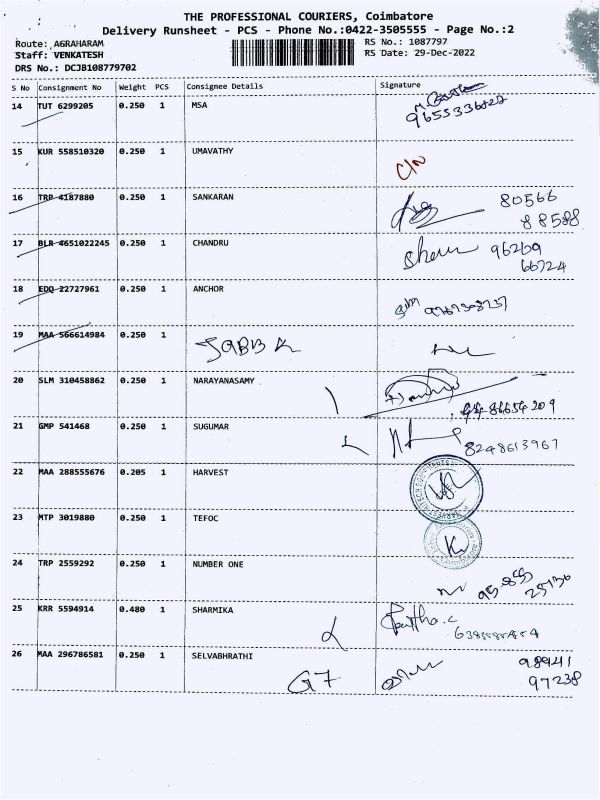 THE PROFESSIONAL COURIERS, Coimbatore
Delivery Runsheet - PCS - Phone No.:0422-3505555 - Page No.:2
Route: AGRAHARAM
RS No.: 1087797
Staff: VENKATESH
RS Date: 29-Dec-2022
DRS No.: DCJB108779702
S No Consignment No Weight PCS Consignee Details Signature
14 TUT 6299205 0.250 1 MSA
15 KUR 558510320 0.250 1 UMAVATHY
C/N
16 TRP 4187880 0.250 1 SANKARAN 80566
88588
17 BLR 4651022245 0.250 1 CHANDRU 96269
66724
18 EDQ 22727961 0.250 1 ANCHOR
19 MAA 566614984 0.250 1
20 SLM 310458862 0.250 1 NARAYANASAMY
21 GMP 541468 0.250 1 SUGUMAR
8248613967
22 MAA 288555676 0.205 1 HARVEST
23 MTP 3019880 0.250 1 TEFOC
24 TRP 2559292 0.250 1 NUMBER ONE
25 KRR 5594914 0.480 1 SHARMIKA
26 MAA 296786581 0.250 1 SELVABHRATHI 98941
G7 97238